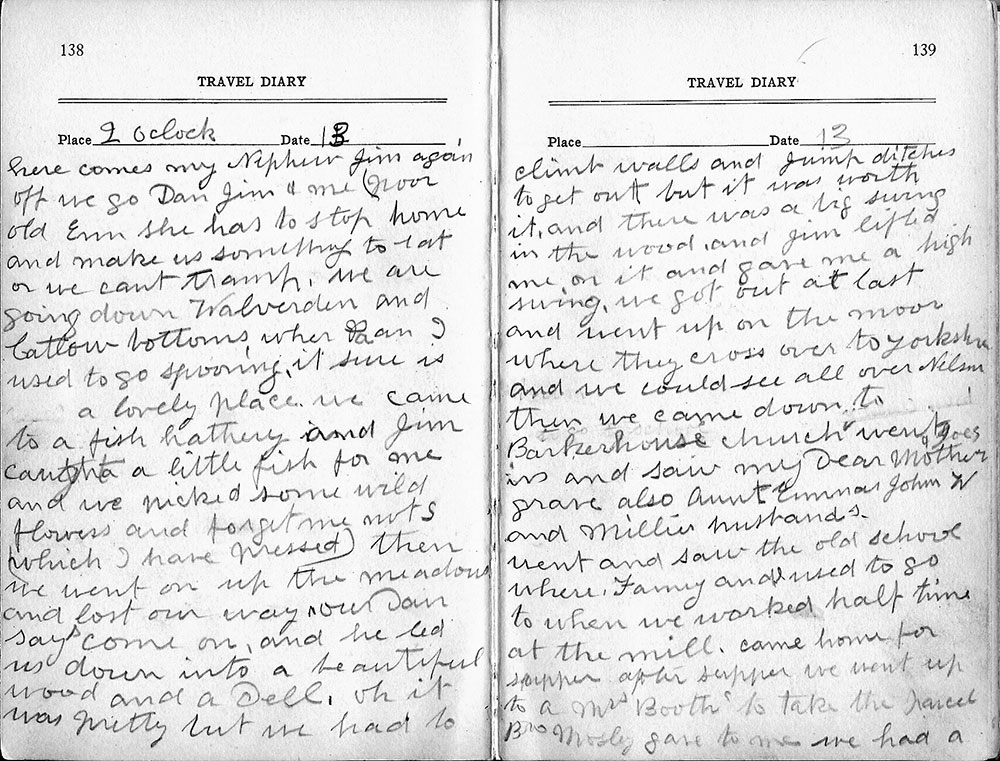 138
TRAVEL DIARY
Place 2 Oclock Date 13
here comes my Nephew Jim again
off we go Dan Jim & me (poor
old Em she has to stop home
and make us something to eat
or we cant tramp, we are
going down Walverden and
Catlow bottoms, wher Dan I
used to go spooring, it sure is
a lovely place. we came
to a fish hathery and Jim
caught a little fish for me
and we picked some wild
flowers and forget me nots
(which I have pressed) then
we went on up the meadows
and lost our way, our Dan
says come on, and he led
us down into a beautiful
wood and a Dell, oh it
was pretty but we had to
139
TRAVEL DIARY
Place Date 13
climb walls and jump ditches
to get out but it was worth
it, and there was a big swing
in the wood, and Jim lifted
me on it and gave me a high
swing, we got out at last
and went up on the moor
where they cross over to yorkshire
and we could see all over Nelson
then we came down to
Barkerhouse church went
in and saw my Dear Mother
grave also Aunt Emmas John W
and Millies husbands.
went and saw the old school
where Fanny and I used to go
to when we worked half time
at the mill. came home for
supper after supper we went up
to a Mrs Booth to take the parcel
Bro Mosly gave to me we had a